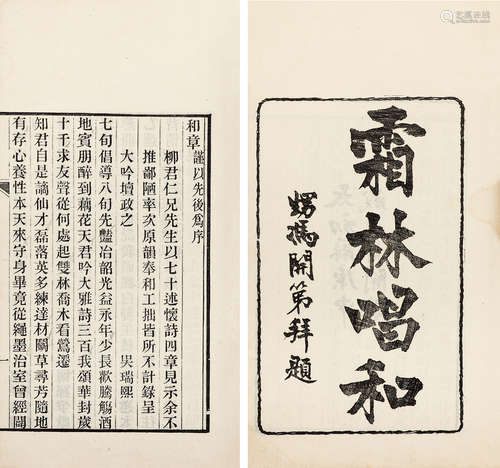 霜林唱和
甥馮開第拜題
和章謹以先後爲序
柳君仁兄先生以七十述懷詩四章見示余不
推鄙陋率次原韻奉和工拙皆所不計錄呈
大吟壇政之 吳瑞熙
七旬倡導八旬先豔冶韶光益永年少長歡騰觴酒
地賓朋醉到藕花天君吟大雅詩三百我頌華封歲
十千求友聲從何處起雙林喬木看鶯遷
知君自是謫仙才磊落英多練達材鬭草尋芳隨地
有存心養性本天來守身畢竟從繩墨治室曾經闢